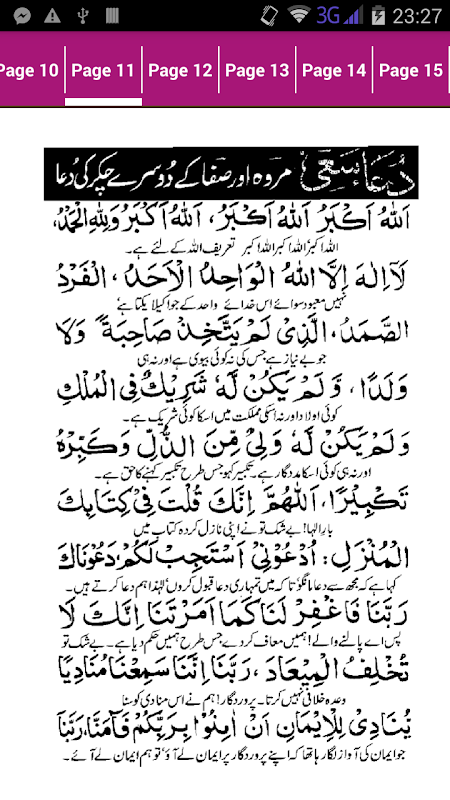 23:27
3G
Page 10
Page 11
Page 12
Page 13
Page 14
Page 15
دُعَا سَعِی مروہ اور صفا کے دُوسرے چکر کی دُعا
اَللهُ اَكْبَرُ اَللهُ اَكْبَرُ، اَللهُ اَكْبَرُ وَلِلّٰهِ الْحَمْدُ،
اللہ اکبر اللہ اکبر اللہ اکبر تعریف اللہ کے لئے ہے۔
لَآ اِلٰهَ اِلَّا اللهُ الْوَاحِدُ الْاَحَدُ، الْفَرْدُ
نہیں معبود سوائے اس خدائے واحد کے جو اکیلا یکتا ہے
الصَّمَدُ، الَّذِىْ لَمْ يَتَّخِذْ صَاحِبَةً وَّلَا
جو بے نیاز ہے جس کی نہ کوئی بیوی ہے اور نہ ہی
وَلَدًا، وَلَمْ يَكُنْ لَّهٗ شَرِيْكٌ فِى الْمُلْكِ
کوئی اولاد اور نہ اسکی مملکت میں اسکا کوئی شریک ہے۔
وَلَمْ يَكُنْ لَّهٗ وَلِىٌّ مِّنَ الذُّلِّ وَكَبِّرْهُ
اور نہ ہی کوئی اسکا مددگار ہے۔ تکبیر کہو جس طرح تکبیر کہنے کا حق ہے۔
تَكْبِيْرًا، اَللّٰهُمَّ اِنَّكَ قُلْتَ فِىْ كِتَابِكَ
بار الہا! بے شک تو نے اپنی نازل کردہ کتاب میں
الْمُنْزَلِ: اُدْعُوْنِىْ اَسْتَجِبْ لَكُمْ، دَعَوْنَاكَ
کہا ہے کہ مجھ سے دعا مانگو تاکہ میں تمہاری دعا قبول کروں لہٰذا ہم دعا کرتے ہیں۔
رَبَّنَا فَاغْفِرْ لَنَا كَمَا اَمَرْتَنَا اِنَّكَ لَا
پس اے پالنے والے! ہمیں معاف کر دے جس طرح ہمیں حکم دیا ہے۔ بے شک تو
تُخْلِفُ الْمِيْعَادَ، رَبَّنَا اِنَّنَا سَمِعْنَا مُنَادِيًا
وعدہ خلافی نہیں کرتا۔ پروردگار! ہم نے اس منادی کو سنا
يُّنَادِىْ لِلْاِيْمَانِ اَنْ اٰمِنُوْا بِرَبِّكُمْ فَاٰمَنَّا، رَبَّنَا
جو ایمان کی آواز لگا رہا تھا کہ اپنے پروردگار پر ایمان لے آؤ تو ہم ایمان لے آئے۔